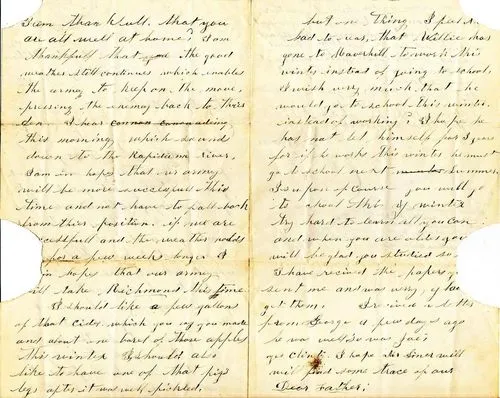 I am thankfull. that you
are all well at home? I am
thankfull that the good
weather still continues which enables
the army to keep on the move,
pressing the enemy back to
I hear cannonading
this morning which sounds
down to the Rapidann River,
I am in hopes that our army
will be more successfull this
time and not have to fall back
from their position. if we are
successfull and the weather holds
for a few week longer I
in hopes that our army
will take Richmond this time
I should like a few gallons
of that Cider which you say you made
and about one barel of those apples
this winter I should also
like to have one of that pigs
legs after it was well pickled.
but one thing I feel
bad to was, that Willie has
gone to Haverhill to work this
winter instead of going to school,
I wish very much that he
would go to school this winter
instead of working? I hope he
has not let himself for
for if he works this winter he must
go to school next summer
I supose of course you will go
to school this winter
try hard to learn all you can
and when you are older you
will be glad you studied so
I have recived the papers you
sent me and was very glad
get them. I recived a letter
from George a few days ago
he was well so was Joe's
I hope
will find some trace of our
Dear Father;